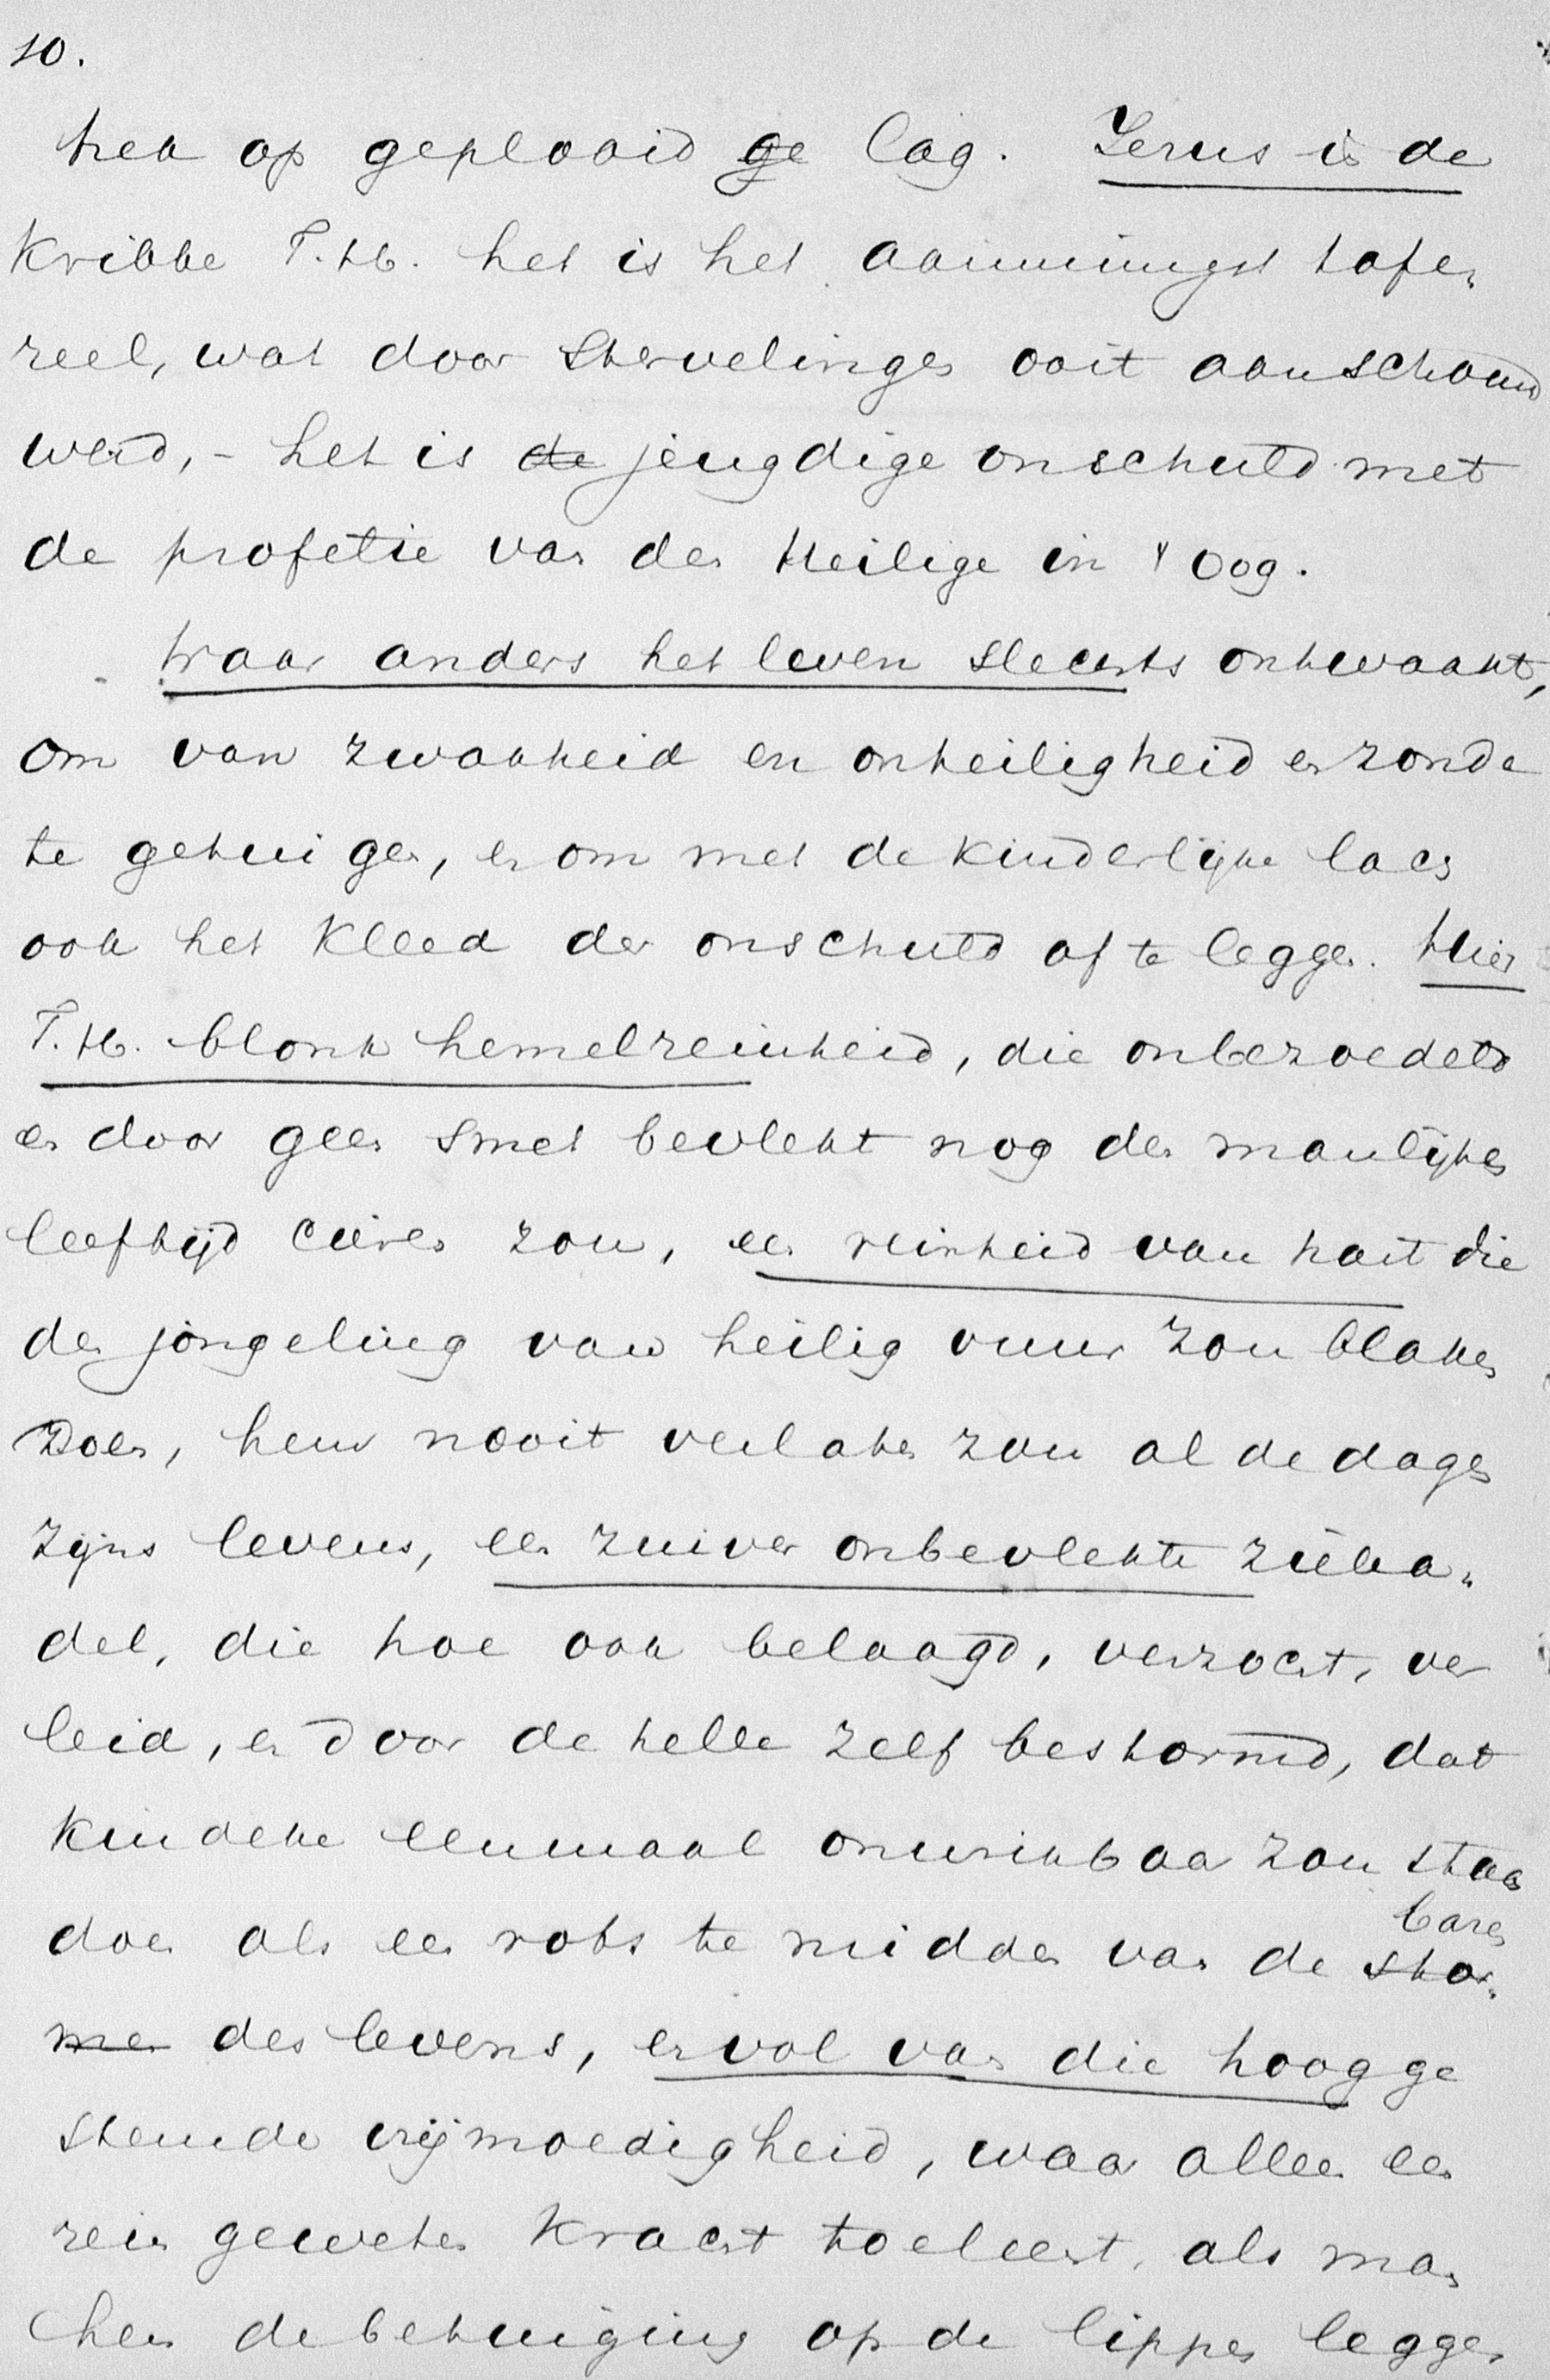 10.
trek op geplooid ge lag. Jezus in de
Kribbe T. H. het is het aanminnigst tafe-
reel, wat door Stervelingen ooit aanschouwd
werd, - het is de jeugdige onschuld met
de profetie van den Heilige in 't oog.
Waar anders het leven slechts ontwaakt,
om van zwakheid en onheiligheid en zonde
te getuigen, en om met de kinderlijke lach
ook het kleed der onschuld af te leggen. Hier
T. H. blonk hemelreinheid, die onbezoedeld
en door geen smet bevlekt nog den manlijken
leeftijd cieren zou, een reinheid van hart die
den jongeling van heilig vuur zou blaken
Doen, hem nooit verlaten zou al de dagen
zijns levens, een zuiver onbevlekte ziela-
del, die hoe ook belaagd, verzocht, ver
leid, en door de helle zelf bestormd, dat
kindeke eenmaal onwrikbaar zou staan
doen als een rots te midden van de stor-
baren
men des levens, en vol van die hoog ge
stemde vrijmoedigheid, waar alleen een
rein geweten Kracht toe leert, als man
hem de betuiging op de lippen leggen